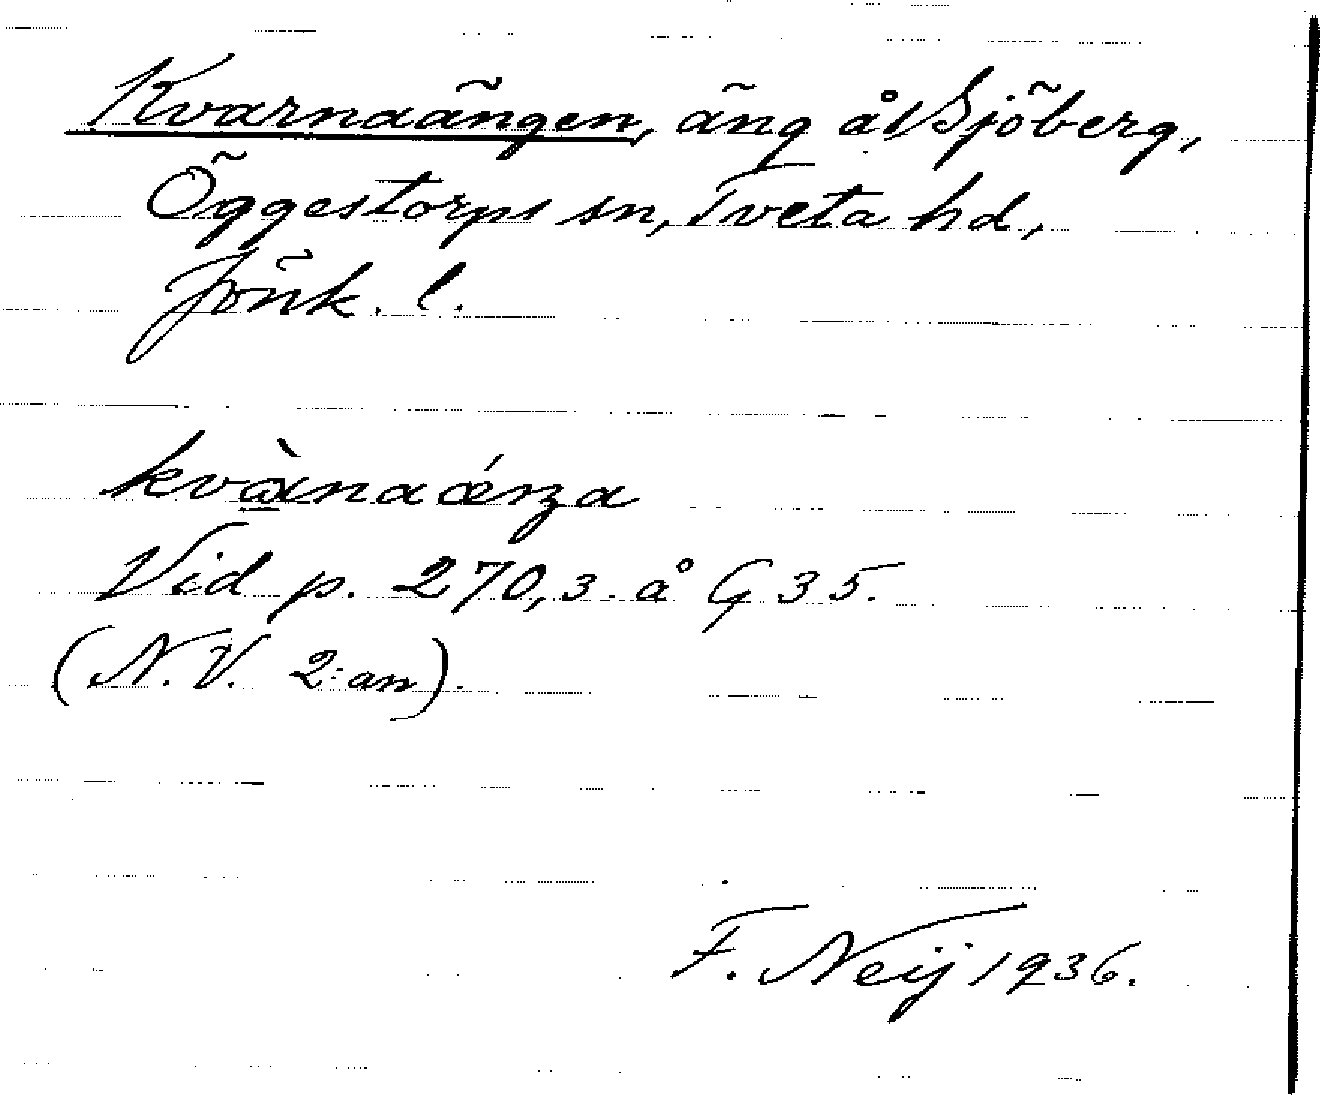 Kvarnaängen, äng å Sjöberg,
Öggestorps sn, Tveta hd,
Jönk. l.
Vid p. 270,3. å G 35.
(N.V. 2:an).
F. Neij 1936.